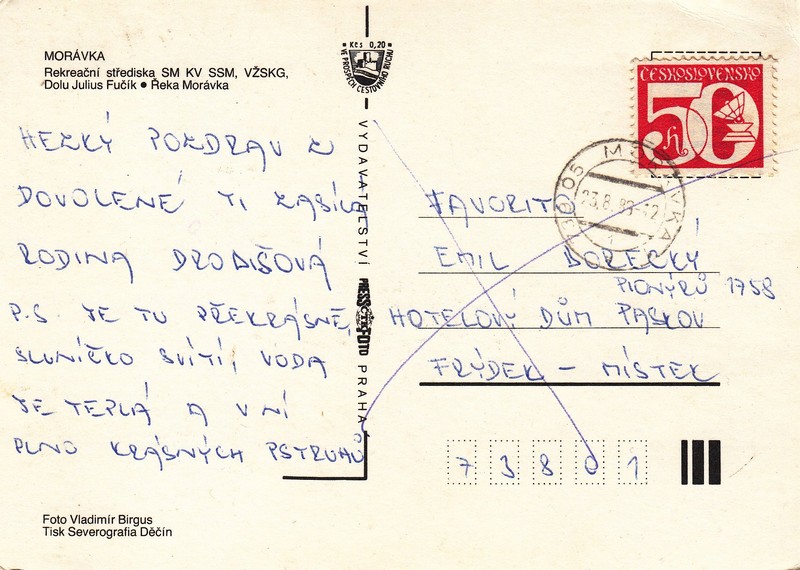 MORÁVKA
Rekreační střediska SM KV SSM, VŽSKG,
Dolu Julius Fučík ● Řeka Morávka
Kčs 0,20
VE PROSPĚCH CESTOVNÍHO RUCHU
ČESKOSLOVENSKO
50 h
23.8.89-12
HEZKÝ POZDRAV Z
DOVOLENÉ TI ZASÍLÁ
RODINA DRODIŠOVÁ
P.S. JE TU PŘEKRÁSNĚ,
SLUNÍČKO SVÍTÍ, VODA
JE TEPLÁ A V NÍ
PLNO KRÁSNÝCH PSTRUHŮ
VYDAVATELSTVÍ PRESSFOTO PRAHA
FAVORITO
EMIL BORECKÝ
PIONÝRŮ 1758
HOTELOVÝ DŮM PASKOV
FRÝDEK – MÍSTEK
73801
Foto Vladimír Birgus
Tisk Severografia Děčín